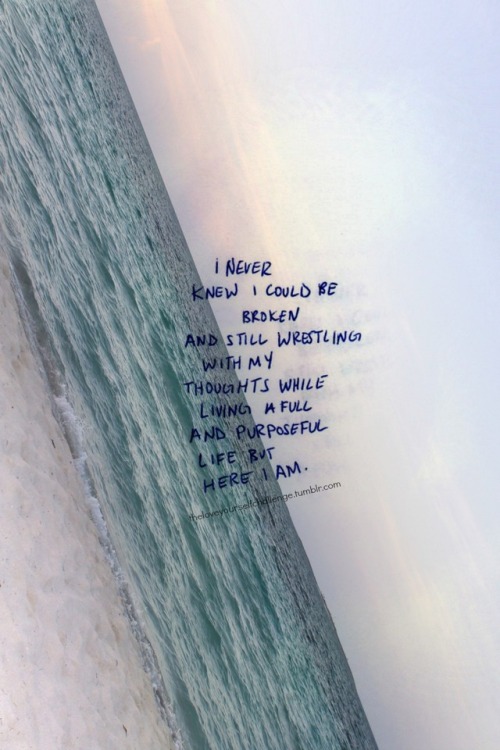 I NEVER
KNEW I COULD BE
BROKEN
AND STILL WRESTLING
WITH MY
THOUGHTS WHILE
LIVING A FULL
AND PURPOSEFUL
LIFE BUT
HERE I AM.
theloveyourselfchallenge.tumblr.com